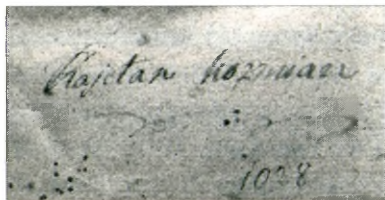 Kajetan Kozmian
1028